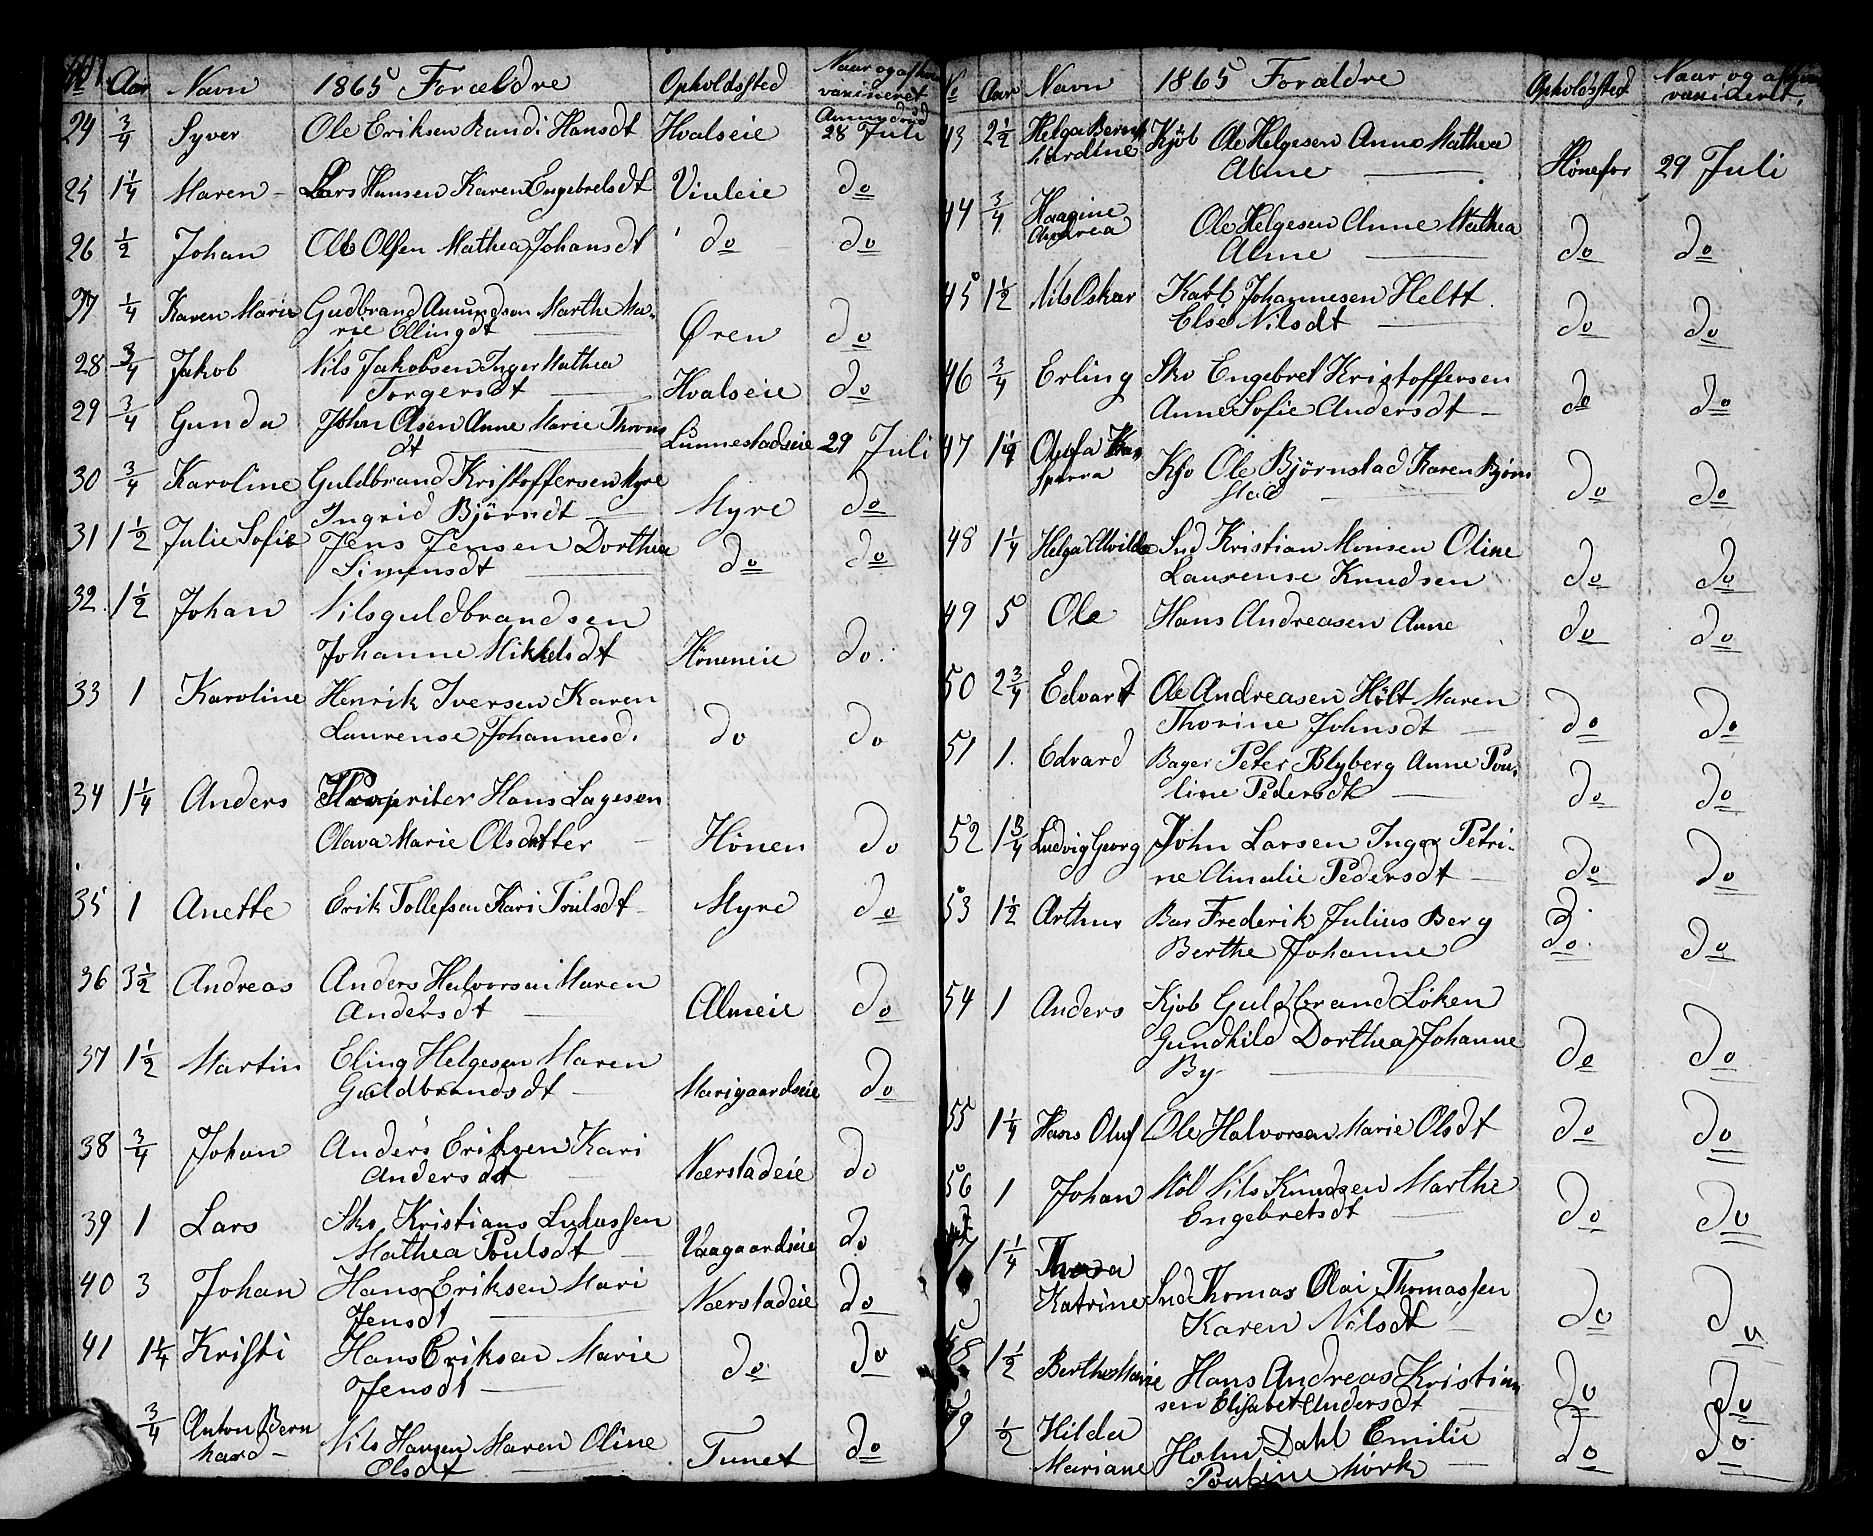 No Aar Navn 1865 Forældre Opholdssted Naar og af hvem
vaxineret
Aamundrud
24 3/4 Syver Ole Eriksen Randi Hansdt Hvalseie 28 Juli
25 1 1/4 Maren - Lars Hansen Karen Engebretsdt Viuleie do
26 1/2 Johan Ole Olsen Mathea Johansdt do do
37 1/4 Karen Marie Gudbrand Amundsen Marthe Ma-
rie Ellingdt Øren do
28 3/4 Jakob Nils Jakobsen Inger Mathea
Torgersdt Hvalseie do
29 3/4 Gunda John Olsen Anne Marie Throns
dt Lunnestadseie 29 Juli
30 3/4 Karoline Guldbrand Kristoffersen Myre
Ingrid Bjørndt Myre do
31 1 1/2 Julie Sofie Jens Jensen Dorthea
Simensdt do do
32. 1 1/2 Johan Nils guldbrandsen
Johanne Mikkelsdt Høneneie do.
33 1 Karoline Henrik Iversen Karen
Laurense Johannesd. do do
34 1 1/4 Anders Propriter Hans Lagesen
Olava Marie Olsdatter Hønen do
35 1 Anette Erik Tollefsen Kari Troulsdt Myre do
36 3 1/2 Andreas Anders Halvorsen Maren
Andersdt Almeie do
37 1 1/2 Martin Eling Helgesen Maren
Guldbrandsdt Marigaardseie do
38 3/4 Johan Anders Eriksen Kari
Andersdt Nærstadeie do
39 1 Lars Sko Kristians Lukassen
Mathea Poulsdt Vaagaardseie do
40 3 Johan Hans Eriksen Mari
Jensdt Nærstadeie do
41 1 1/4 Kristi Hans Eriksen Marie
Jensdt do do
3/4 Anton Bern
hard - Nils Hansen Maren Oline
Olsdt Tunet do
No Aar Navn 1865 Forældre Opholdssted Naar og af hvem
vaxineret.
43 2 1/2 Helga Bern
hardine Kjöb Ole Helgesen Anne Mathea
Alme Hønefos 29 Juli
44 3/4 Haagine
Andrea Ole Helgesen Anne Mathea
Alme do do
45 1 1/2 Nils Oskar Karl Johannesen Heltt
Else Nilsdt do do
46 3/4 Erling Sko Engebret Kristoffersen
Anne Sofie Andersdt do do
47 Olufa Kjø Ole Bjørnstad Karen Bjørn
stad do do
48 1 1/4 Helga Alvilde Snd Kristian Monsen Oline
Laurense Knudsen do do
49 5 Ole Hans Andreasen Anne do do
50 2 3/4 Edvart Ole Andreasen Hølt Maren
Thorine Johnsdt do do
51 1. Edvard Bager Peter Blyberg Anne Pou-
line Pedersdt do do
52 1 3/4 Ludvig Georg John Larsen Inger Petri-
ne Amalie Pedersdt do do
53 1 1/2 Arthur Bar Frederik Julius Berg
Berthe Johanne do. do
54 1 Anders Kjøb Guldbrand Löken
Gundhild Dorthea Johanne
By do do
55 1 1/4 Hans Oluf Ole Halvorsen Marie Olsdt do do
56 1 Johan Möl Nils Knudsen Marthe
Engebretsdt do do
57 1 1/4 Thora
Katrine Snd Thomas Olai Thomassen
Karen Nilsdt do do
58 1 1/2 Berthe Marie Hans Andreas Kristian
sen Elisabet Andersdt do do
59 1/2 Hilda
Mariane Holm Dahl Emilie
Pouline Mörk do do